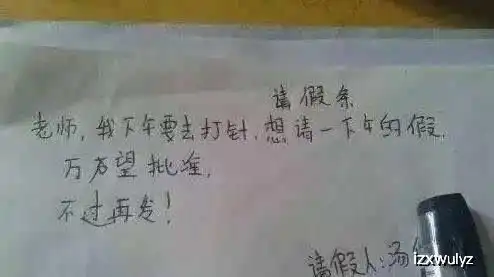 请假条
老师,我下午要去打针,想请一下午的假,
万万望批准,
不过再发!
请假人:汤
izxwulyz